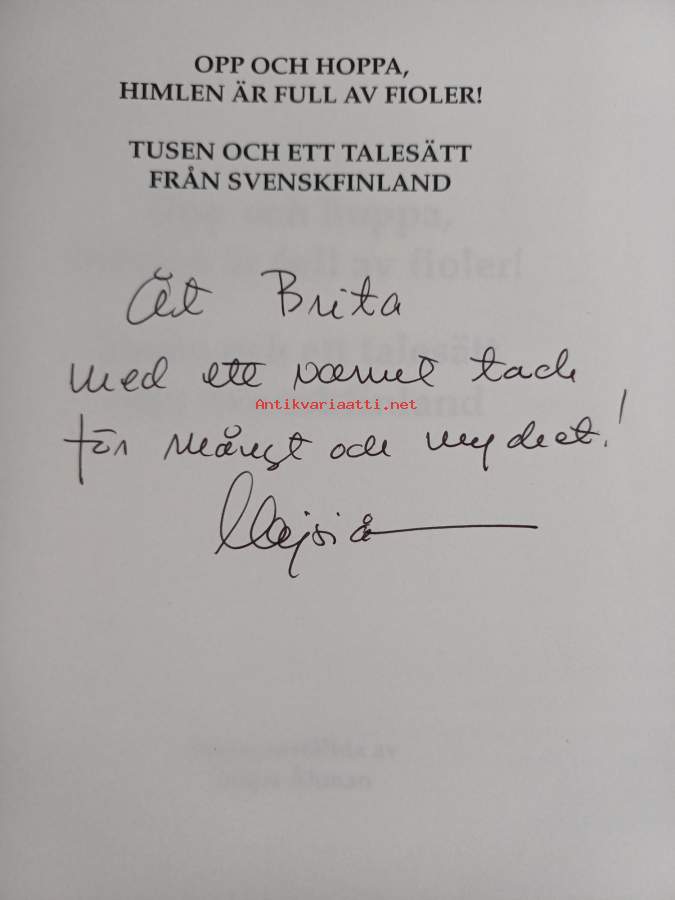 OPP OCH HOPPA,
HIMLEN ÄR FULL AV FIOLER!
TUSEN OCH ETT TALESÄTT
FRÅN SVENSKFINLAND
Åt Brita
med ett varmt tack
Antikvariaatti.net
för mångt och mycket!